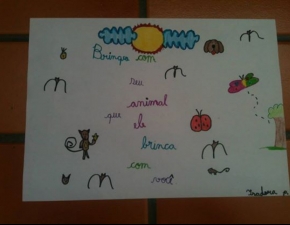 Brinque com
seu
animal
que ele
brinca
com
você